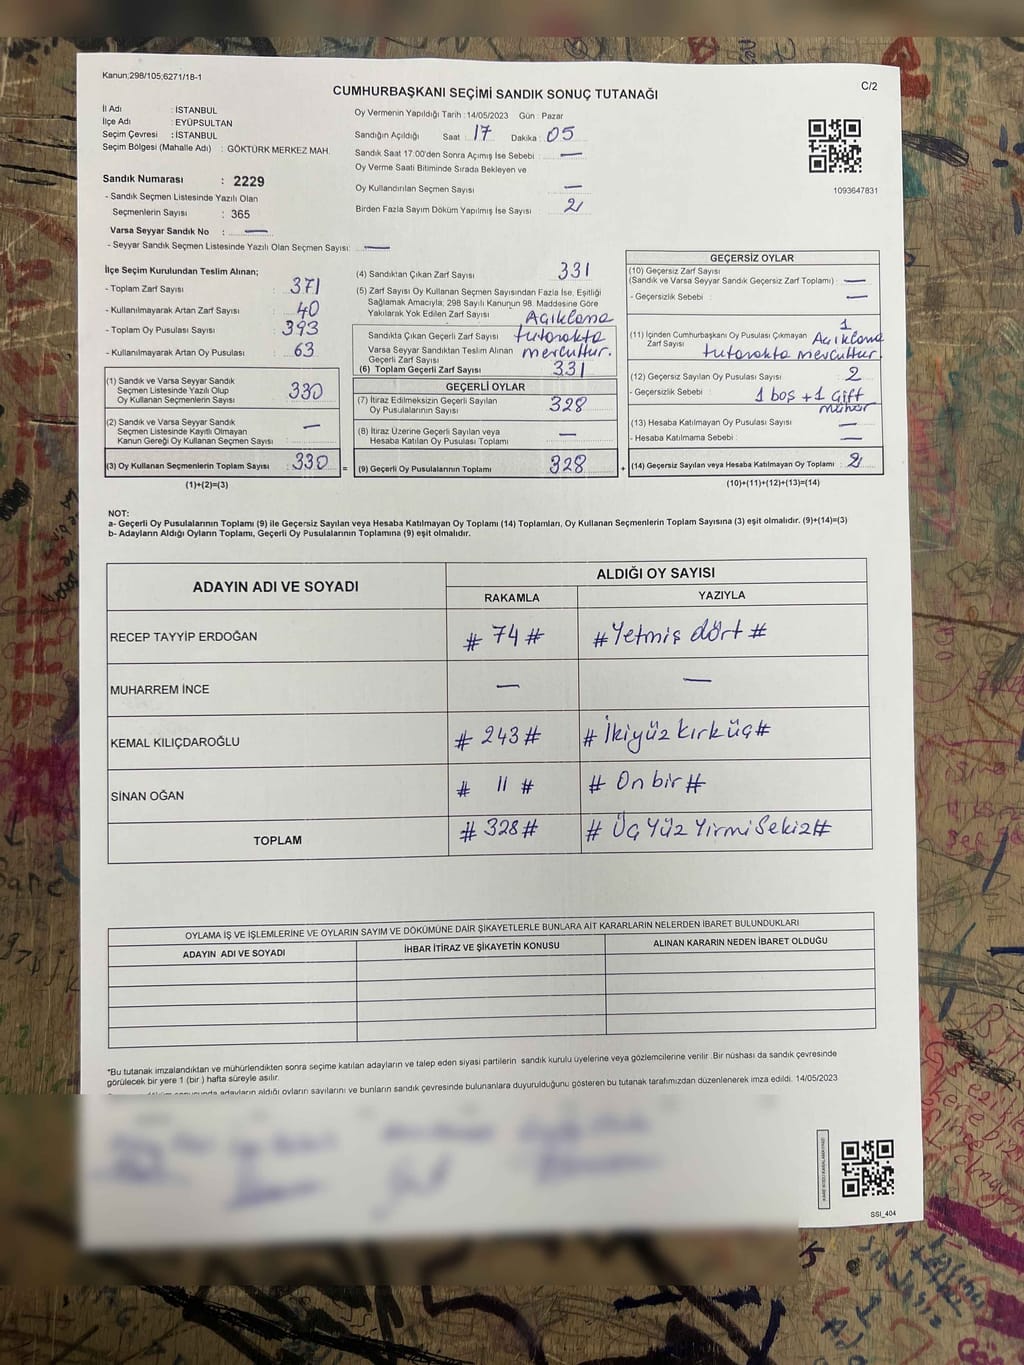 Kanun;298/105;6271/1B-1
C/2
CUMHURBAŞKANI SEÇİMİ SANDIK SONUÇ TUTANAĞI
İl Adı : İSTANBUL
İlçe Adı : EYÜPSULTAN
Seçim Çevresi : İSTANBUL
Seçim Bölgesi (Mahalle Adı) : GÖKTÜRK MERKEZ MAH.
Sandık Numarası : 2229
- Sandık Seçmen Listesinde Yazılı Olan
Seçmenlerin Sayısı : 365
Varsa Seyyar Sandık No : —
- Seyyar Sandık Seçmen Listesinde Yazılı Olan Seçmen Sayısı: —
Oy Vermenin Yapıldığı Tarih : 14/05/2023 Gün : Pazar
Sandığın Açıldığı Saat : 17 Dakika : 05
Sandık Saat 17.00'den Sonra Açımış İse Sebebi : —
Oy Verme Saati Bitiminde Sırada Bekleyen ve
Oy Kullandırılan Seçmen Sayısı —
Birden Fazla Sayım Döküm Yapılmış İse Sayısı : 2
1093647831
İlçe Seçim Kurulundan Teslim Alınan;
- Toplam Zarf Sayısı : 371
- Kullanılmayarak Artan Zarf Sayısı : 40
- Toplam Oy Pusulası Sayısı : 393
- Kullanılmayarak Artan Oy Pusulası : 63
(1) Sandık ve Varsa Seyyar Sandık
Seçmen Listesinde Yazılı Olup
Oy Kullanan Seçmenlerin Sayısı : 330
(2) Sandık ve Varsa Seyyar Sandık
Seçmen Listesinde Kayıtlı Olmayan
Kanun Gereği Oy Kullanan Seçmen Sayısı : —
(3) Oy Kullanan Seçmenlerin Toplam Sayısı : 330 =
(1)+(2)=(3)
(4) Sandıktan Çıkan Zarf Sayısı 331
(5) Zarf Sayısı Oy Kullanan Seçmen Sayısından Fazla İse, Eşitliği
Sağlamak Amacıyla; 298 Sayılı Kanunun 98. Maddesine Göre
Yakılarak Yok Edilen Zarf Sayısı : Açıklama
Sandıkta Çıkan Geçerli Zarf Sayısı : tutanakta
Varsa Seyyar Sandıktan Teslim Alınan mevcuttur.
Geçerli Zarf Sayısı
(6) Toplam Geçerli Zarf Sayısı 331
GEÇERLİ OYLAR
(7) İtiraz Edilmeksizin Geçerli Sayılan
Oy Pusulalarının Sayısı : 328
(8) İtiraz Üzerine Geçerli Sayılan veya
Hesaba Katılan Oy Pusulası Toplamı : —
(9) Geçerli Oy Pusulalarının Toplamı : 328 +
GEÇERSİZ OYLAR
(10) Geçersiz Zarf Sayısı
(Sandık ve Varsa Seyyar Sandık Geçersiz Zarf Toplamı) : —
- Geçersizlik Sebebi : —
1
(11) İçinden Cumhurbaşkanı Oy Pusulası Çıkmayan Açıklama
Zarf Sayısı : tutanakta mevcuttur.
(12) Geçersiz Sayılan Oy Pusulası Sayısı : 2
- Geçersizlik Sebebi : 1 boş + 1 çift
mühür
(13) Hesaba Katılmayan Oy Pusulası Sayısı : —
- Hesaba Katılmama Sebebi : —
(14) Geçersiz Sayılan veya Hesaba Katılmayan Oy Toplamı : 2
(10)+(11)+(12)+(13)=(14)
NOT:
a- Geçerli Oy Pusulalarının Toplamı (9) ile Geçersiz Sayılan veya Hesaba Katılmayan Oy Toplamı (14) Toplamları, Oy Kullanan Seçmenlerin Toplam Sayısına (3) eşit olmalıdır. (9)+(14)=(3)
b- Adayların Aldığı Oyların Toplamı, Geçerli Oy Pusulalarının Toplamına (9) eşit olmalıdır.
ADAYIN ADI VE SOYADI
ALDIĞI OY SAYISI
RAKAMLA YAZIYLA
RECEP TAYYİP ERDOĞAN # 74 # # Yetmiş dört #
MUHARREM İNCE — —
KEMAL KILIÇDAROĞLU # 243 # # İkiyüz kırküç #
SİNAN OĞAN # 11 # # On bir #
TOPLAM # 328 # # Üç Yüz Yirmi Sekiz #
OYLAMA İŞ VE İŞLEMLERİNE VE OYLARIN SAYIM VE DÖKÜMÜNE DAİR ŞİKAYETLERLE BUNLARA AİT KARARLARIN NELERDEN İBARET BULUNDUKLARI
ADAYIN ADI VE SOYADI İHBAR İTİRAZ VE ŞİKAYETİN KONUSU ALINAN KARARIN NEDEN İBARET OLDUĞU
*Bu tutanak imzalandıktan ve mühürlendikten sonra seçime katılan adayların ve talep eden siyasi partilerin sandık kurulu üyelerine veya gözlemcilerine verilir .Bir nüshası da sandık çevresinde
görülecek bir yere 1 (bir ) hafta süreyle asılır.
adayların aldığı oyların sayılarını ve bunların sandık çevresinde bulunanlara duyurulduğunu gösteren bu tutanak tarafımızdan düzenlenerek imza edildi. 14/05/2023
SSİ_404